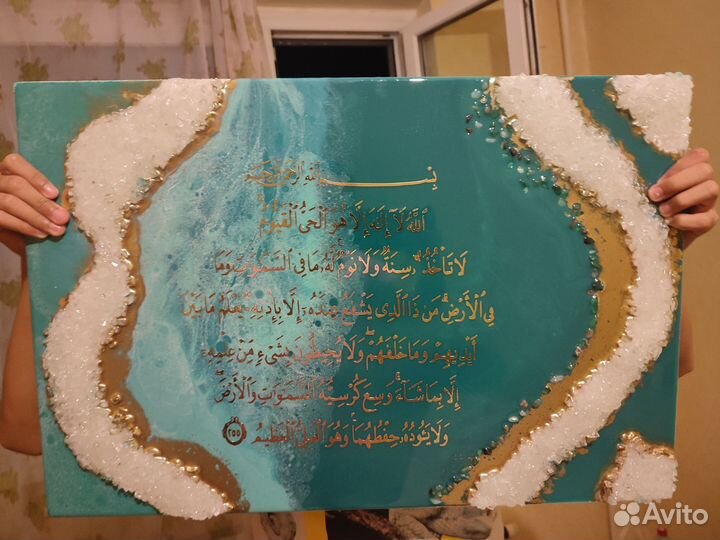 بِسْمِ اللَّهِ الرَّحْمَٰنِ الرَّحِيمِ
ٱللَّهُ لَآ إِلَٰهَ إِلَّا هُوَ ٱلْحَىُّ ٱلْقَيُّومُ
لَا تَأْخُذُهُۥ سِنَةٌ وَلَا نَوْمٌ لَّهُۥ مَا فِى ٱلسَّمَٰوَٰتِ وَمَا
فِى ٱلْأَرْضِ مَن ذَا ٱلَّذِى يَشْفَعُ عِندَهُۥٓ إِلَّا بِإِذْنِهِۦ يَعْلَمُ مَا بَيْنَ
أَيْدِيهِمْ وَمَا خَلْفَهُمْ وَلَا يُحِيطُونَ بِشَىْءٍ مِّنْ عِلْمِهِۦٓ
إِلَّا بِمَا شَآءَ وَسِعَ كُرْسِيُّهُ ٱلسَّمَٰوَٰتِ وَٱلْأَرْضَ
وَلَا يَـُٔودُهُۥ حِفْظُهُمَا وَهُوَ ٱلْعَلِىُّ ٱلْعَظِيمُ ٢٥٥
Avito